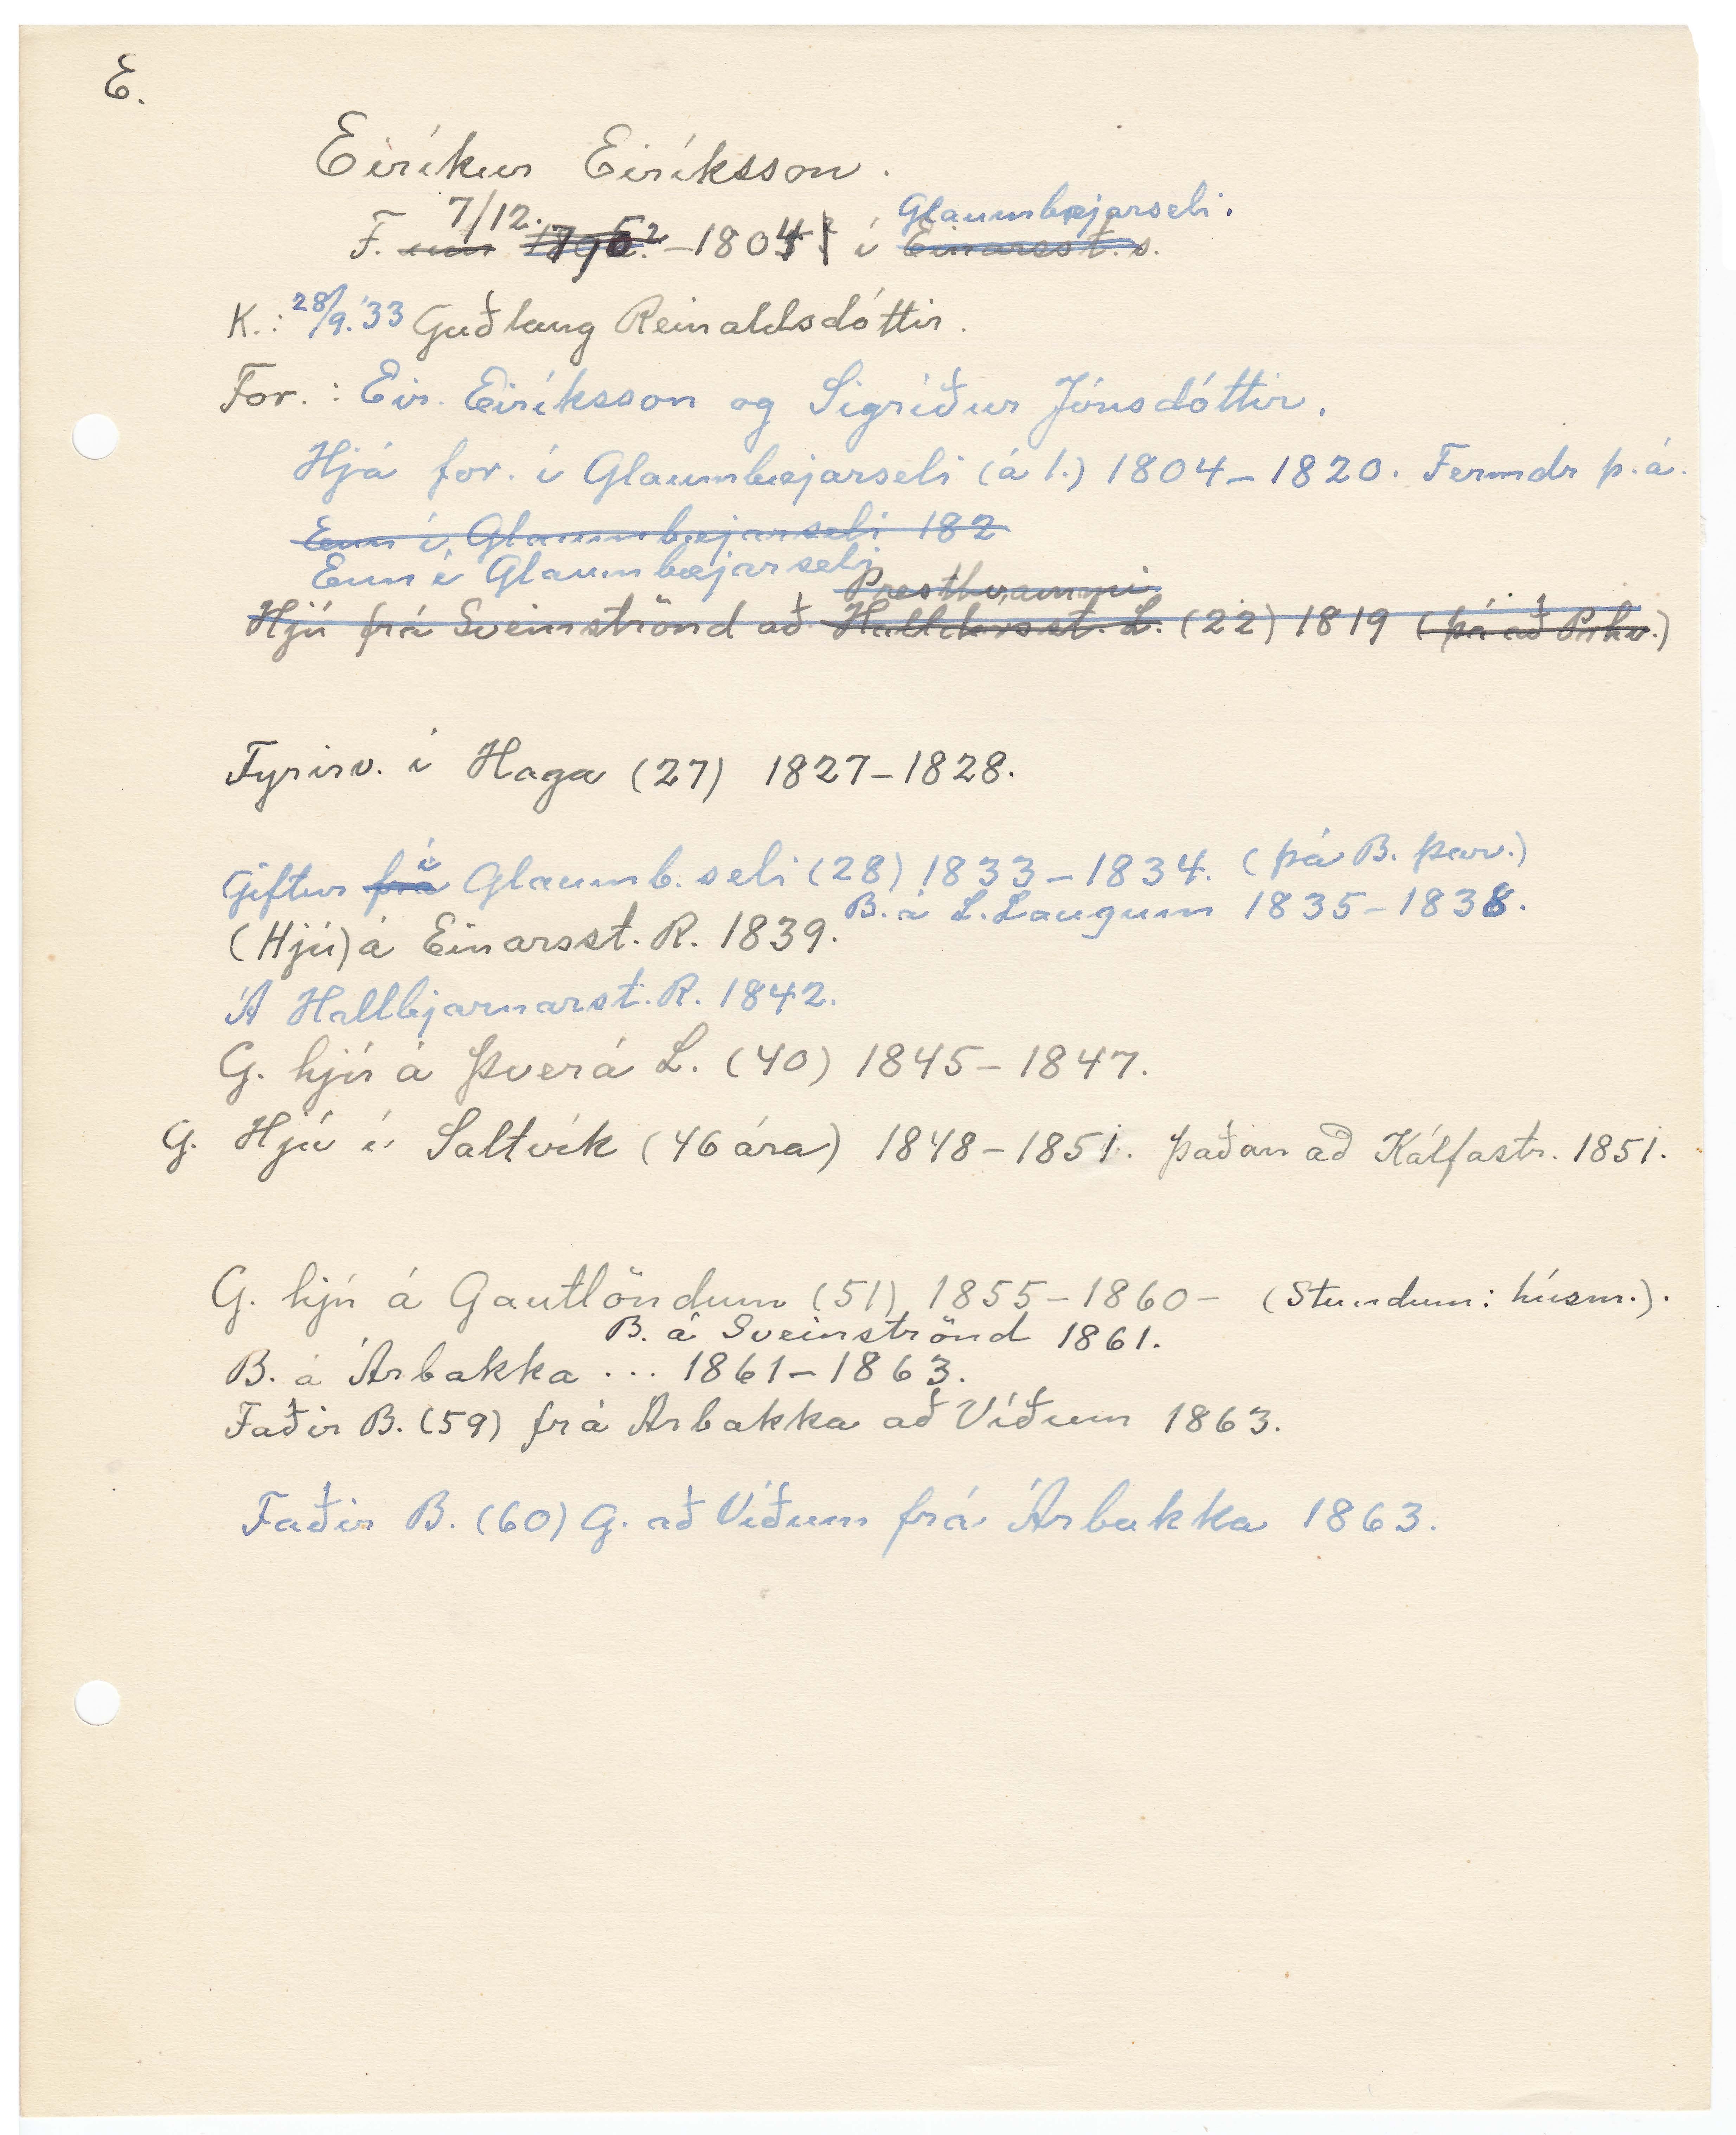 E.
Eiríkur Eiríksson.
7/12. Glaumbæjarseli.
F. um 1804 í Einarsst.s.
K.: 28/9.'33 Guðlaug Reinaldsdóttir.
For.: Eir. Eiríksson og Sigríður Jónsdóttir.
Hjá for. í Glaumbæjarseli (á 1.) 1804-1820. Fermdr þ.á.
Enn í Glaumbæjarseli 182
Enn í Glaumbæjarseli
Presthvammi
Hjú frá Sveinströnd að Halldórsst. L. (22) 1819 (þá að Prhv.)
Fyrirv. í Haga (27) 1827-1828.
Giftur frá í Glaumb.seli (28) 1833-1834. (þá B. þar.)
B. á L. Laugum 1835-1838.
(Hjú) á Einarsst. R. 1839.
Á Hallbjarnarst. R. 1842.
G. hjú á Þverá L. (40) 1845-1847.
G. Hjú í Saltvík (46 ára) 1848-1851. Þaðan að Kálfastr. 1851.
G. hjú á Gautlöndum (51) 1855-1860- (Stundum: húsm.).
B. á Sveinströnd 1861.
B. á Árbakka ... 1861-1863.
Faðir B. (59) frá Árbakka að Víðum 1863.
Faðir B. (60) G. að Víðum frá Árbakka 1863.